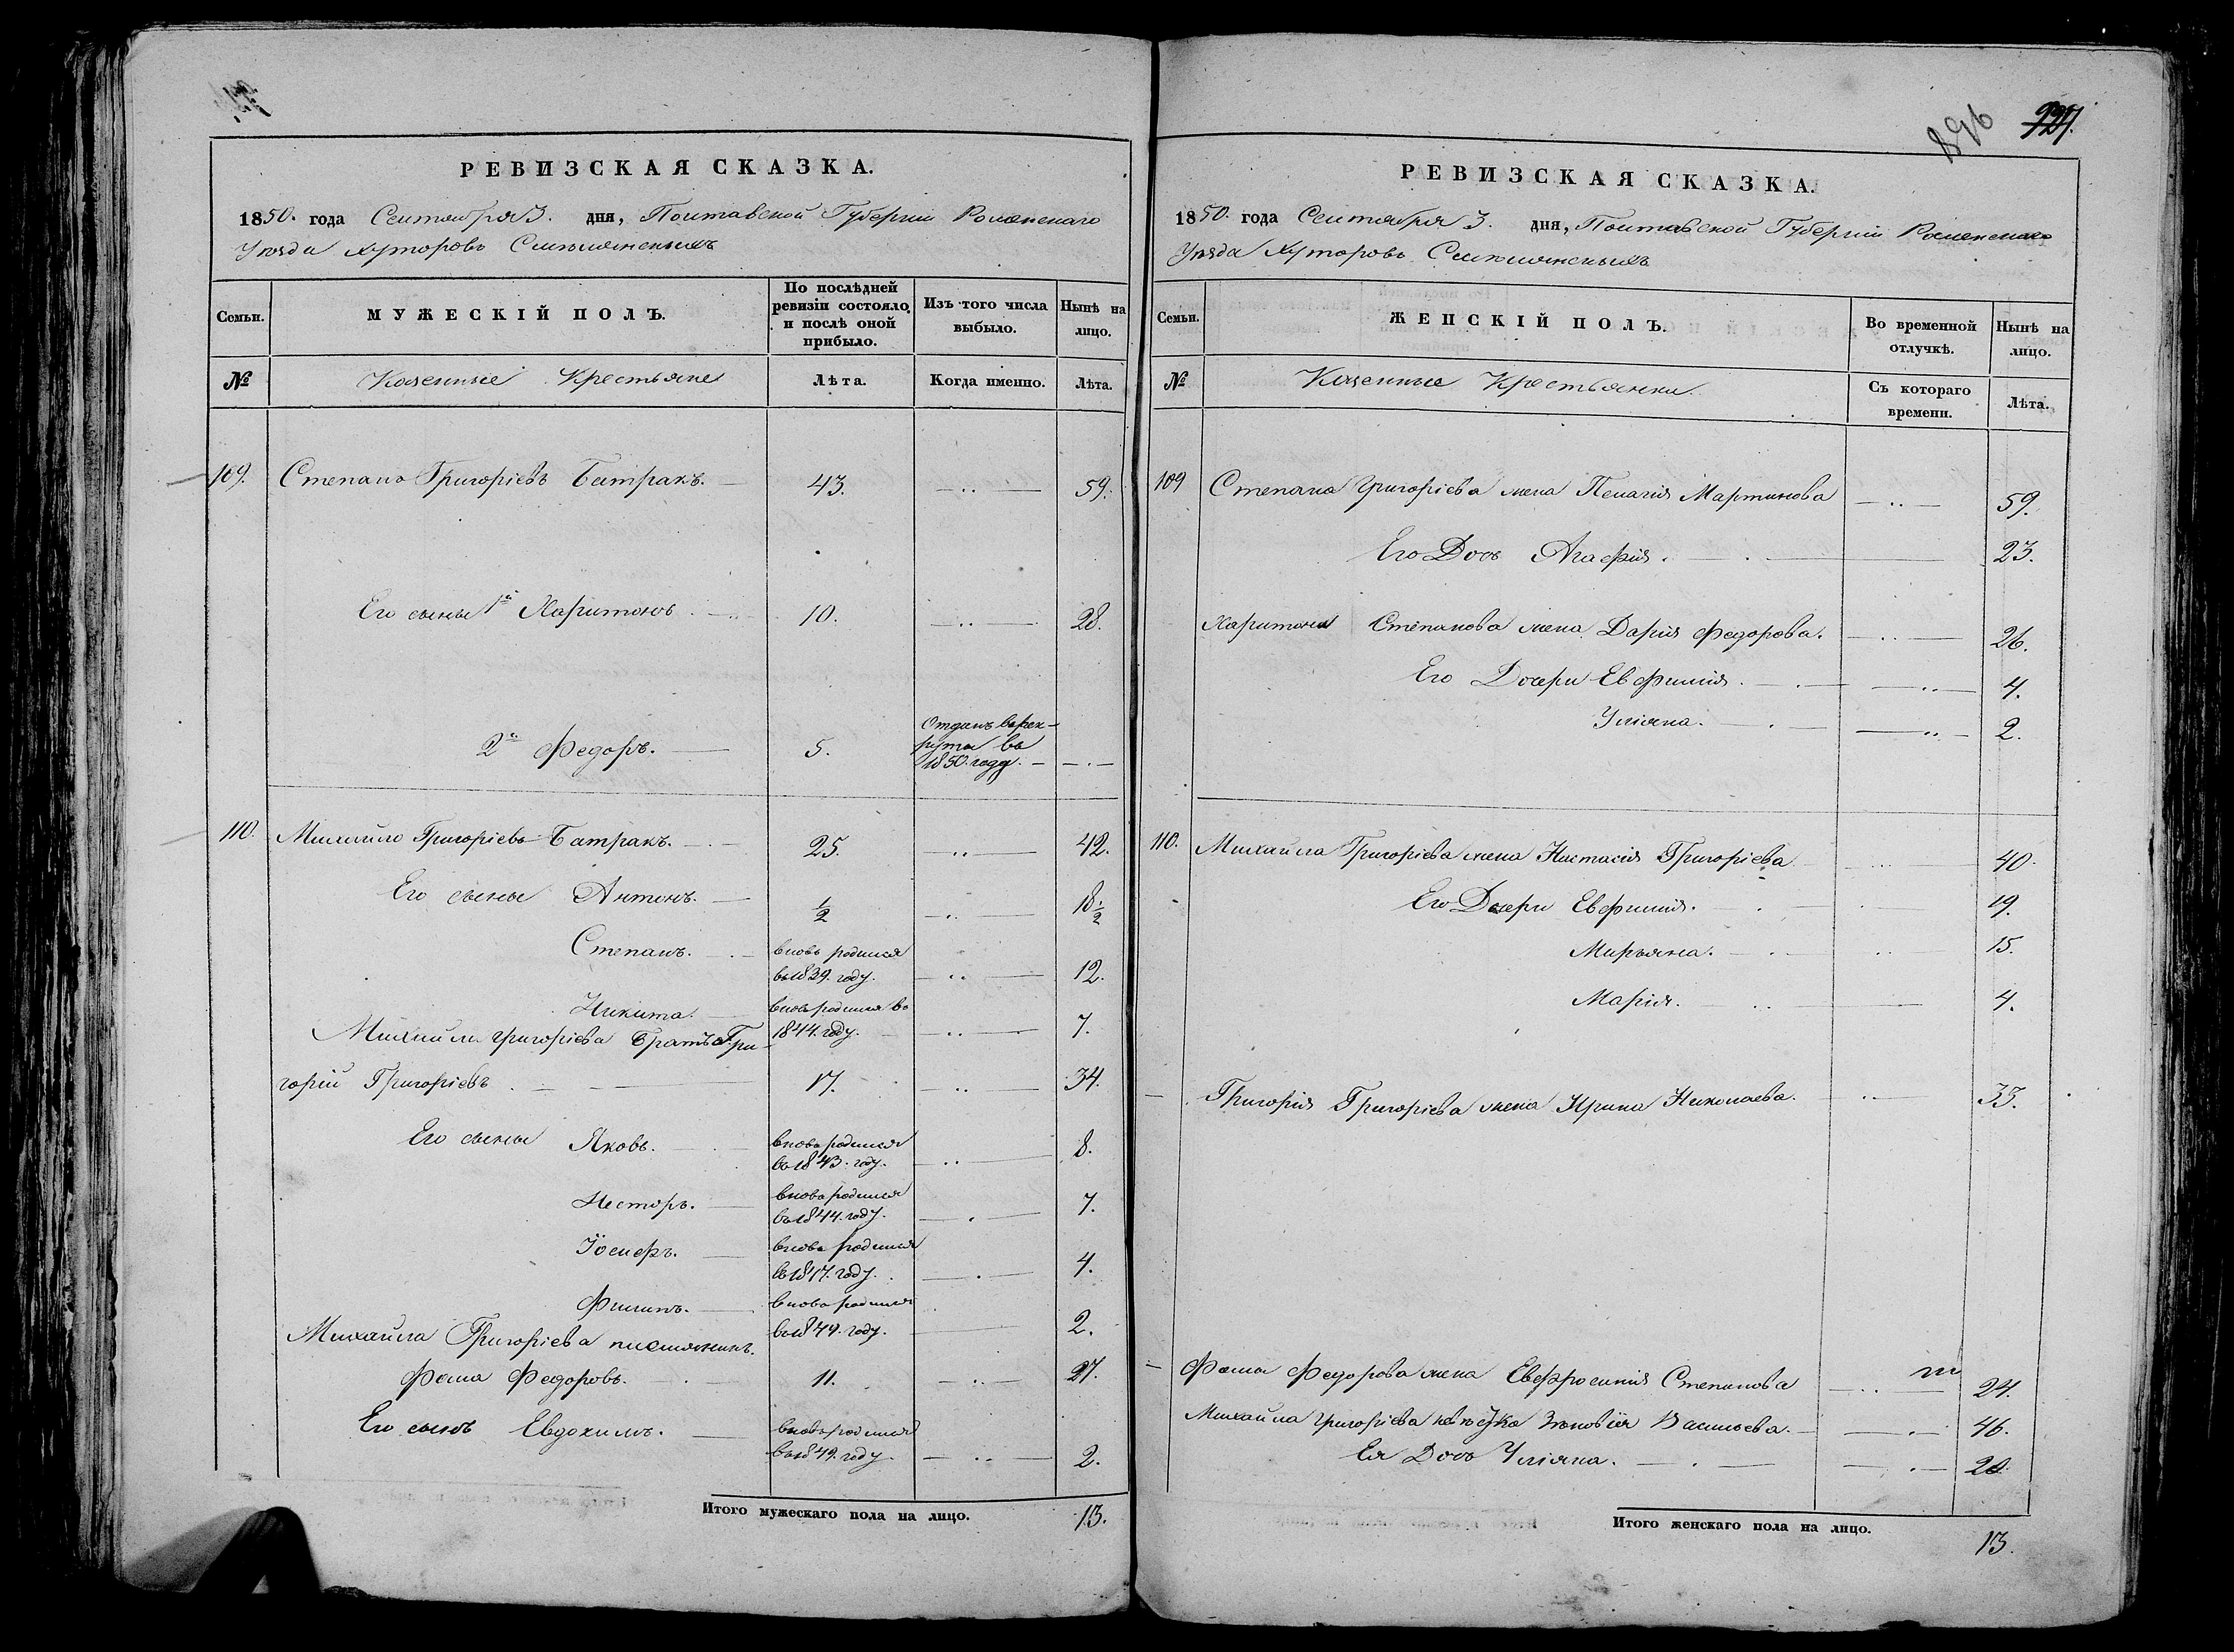 РЕВИЗСКАЯ СКАЗКА.
1850. года Сентября 3. дня, Полтавской Губерніи Роменскаго
Уезда Хуторовъ
Семьи.
МУЖЕСКІЙ ПОЛЪ.
По послѣдней
ревизіи состояло,
и послѣ оной
прибыло.
Изъ того числа
выбыло.
Нынѣ на
лицо.
№
Казенные Крестьяне
Лѣта.
Когда именно.
Лѣта.
109. Степанъ Григоріевъ Батракъ. 43. 59.
Его сыны 1й Харитонъ 10. 28.
2й Федоръ. 5.
Отданъ в рек-
руты въ
1850. году.
110. Михайло Григоріевъ Батракъ. 25. 42.
Его сыны Антонъ. 1/2 18 1/2
Степанъ. вновь родился
въ 1839. году. 12.
Никита. вновь родился въ
1844. году. 7.
Михайла Григоріева Братъ Гри-
горій Григоріевъ 17. 34.
Его сыны Яковъ. вновь родился
въ 1843. году. 8.
Несторъ. вновь родился
въ 1844. году. 7.
Іосифъ. вновь родился
въ 1847. году. 4.
Филипъ. вновь родился
въ 1849. году. 2.
Михайла Григоріева племянникъ.
Фома Федоровъ. 11. 27.
Его сынъ Евдокимъ. вновь родился
въ 1849. году. 2.
Итого мужескаго пола на лицо. 13.
896 
РЕВИЗСКАЯ СКАЗКА.
1850. года Сентября 3. дня, Полтавской Губерніи Роменскаго
Уезда Хуторовъ
Семьи.
ЖЕНСКІЙ ПОЛЪ.
Во временной
отлучкѣ.
Нынѣ на
лицо.
№
Казенные Крестьянки.
Съ котораго
времени.
Лѣта.
109 Степана Григоріева жена Пелагія Мартинова 59.
Его Дочь Агафія. 23.
Харитона Степанова жена Дарія Федорова. 26.
Его Дочери Евфимія. 4.
Уліяна. 2.
110. Михайла Григоріева жена Настасія Григоріева 40.
Его Дочери Евфимія. 19.
Марьяна. 15.
Марія. 4.
Григорія Григоріева жена Ирина Николаева. 33.
Фомы Федорова жена Евфросинія Степанова 24.
Михайла Григоріева невѣстка Зиновія Васильева. 46.
Ея Дочь Уліяна. 20.
Итого женскаго пола на лицо. 13.